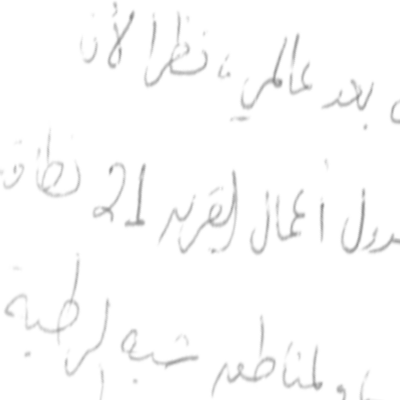 بعد عالمي، نظرا لأن
جدول أعمال القرن 21 نطاق
المناطق شبه الرطبة